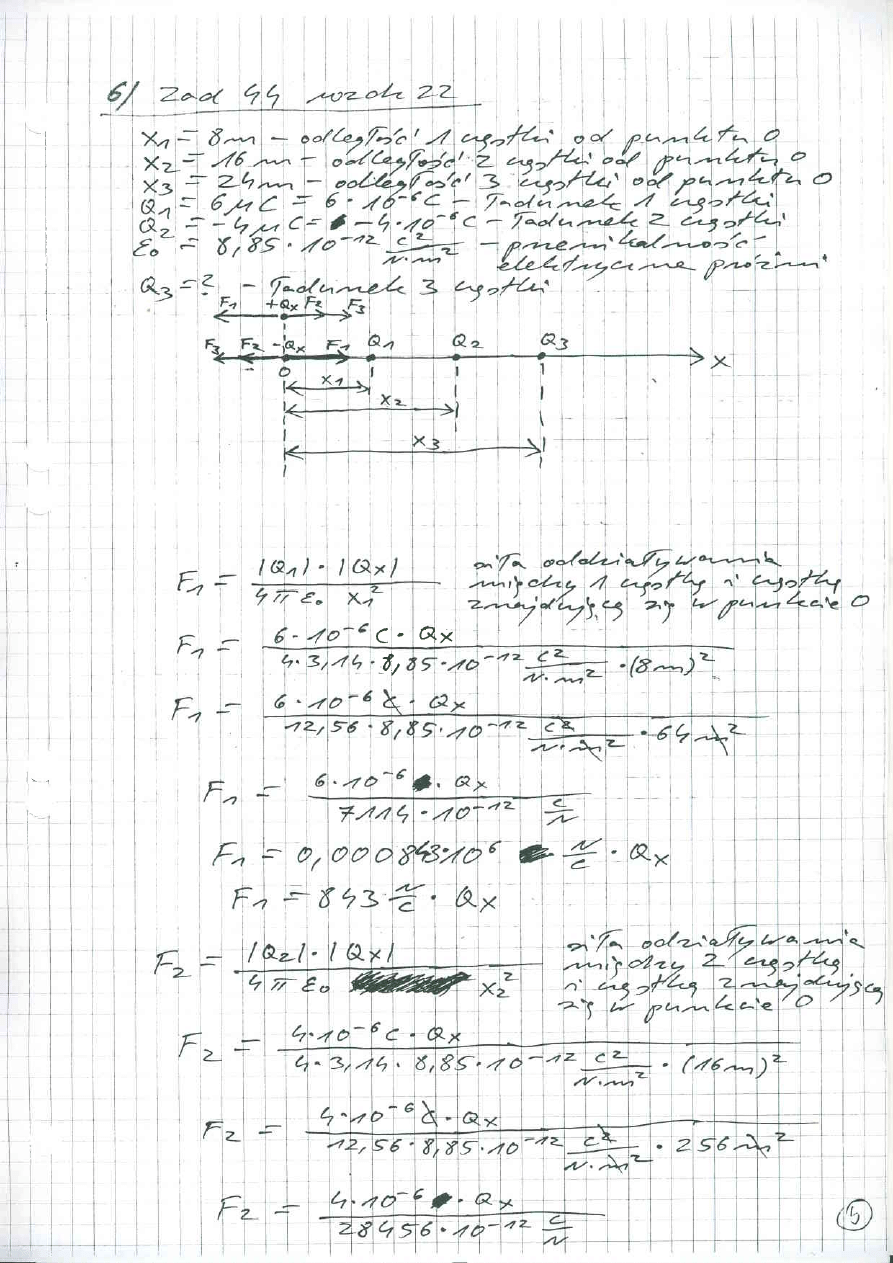 6/ Zad 44 rozdz 22
x1 = 8m – odległość 1 cząstki od punktu O
x2 = 16m – odległość 2 cząstki od punktu O
x3 = 24m – odległość 3 cząstki od punktu O
Q1 = 6μC = 6·10⁻⁶C – ładunek 1 cząstki
Q2 = -4μC = -4·10⁻⁶C – ładunek 2 cząstki
ε₀ = 8,85·10⁻¹² C²/N·m² – przenikalność
elektryczna próżni
Q3 = ? – ładunek 3 cząstki
F1 +Qx F2 F3
F3 F2 -Qx F1 Q1 Q2 Q3
O x
x1
x2
x3
F1 = |Q1|·|Qx| / 4πε₀ x1² siła oddziaływania
między 1 cząstką i cząstką
znajdującą się w punkcie O
F1 = 6·10⁻⁶C·Qx / 4·3,14·8,85·10⁻¹² C²/N·m² ·(8m)²
F1 = 6·10⁻⁶C·Qx / 12,56·8,85·10⁻¹² C²/N·m² ·64m²
F1 = 6·10⁻⁶·Qx / 7114·10⁻¹² C/N
F1 = 0,000843·10⁶ N/C · Qx
F1 = 843 N/C · Qx
F2 = |Q2|·|Qx| / 4πε₀ x2² siła odziaływania
między 2 cząstką
i cząstką znajdującą
się w punkcie O
F2 = 4·10⁻⁶C·Qx / 4·3,14·8,85·10⁻¹² C²/N·m² ·(16m)²
F2 = 4·10⁻⁶C·Qx / 12,56·8,85·10⁻¹² C²/N·m² ·256m²
F2 = 4·10⁻⁶·Qx / 28456·10⁻¹² C/N
5